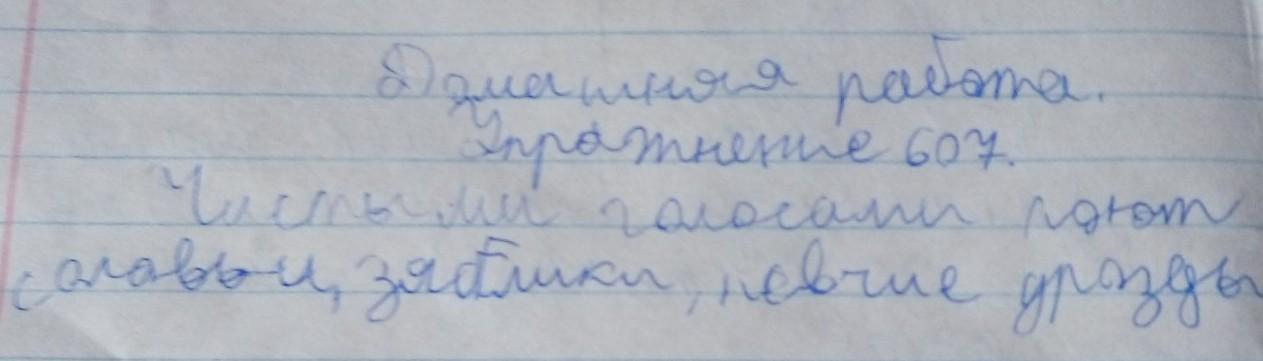 Домашняя работа.
Упражнение 607.
Чистыми голосами поют
соловьи, зяблики, певчие дрозды